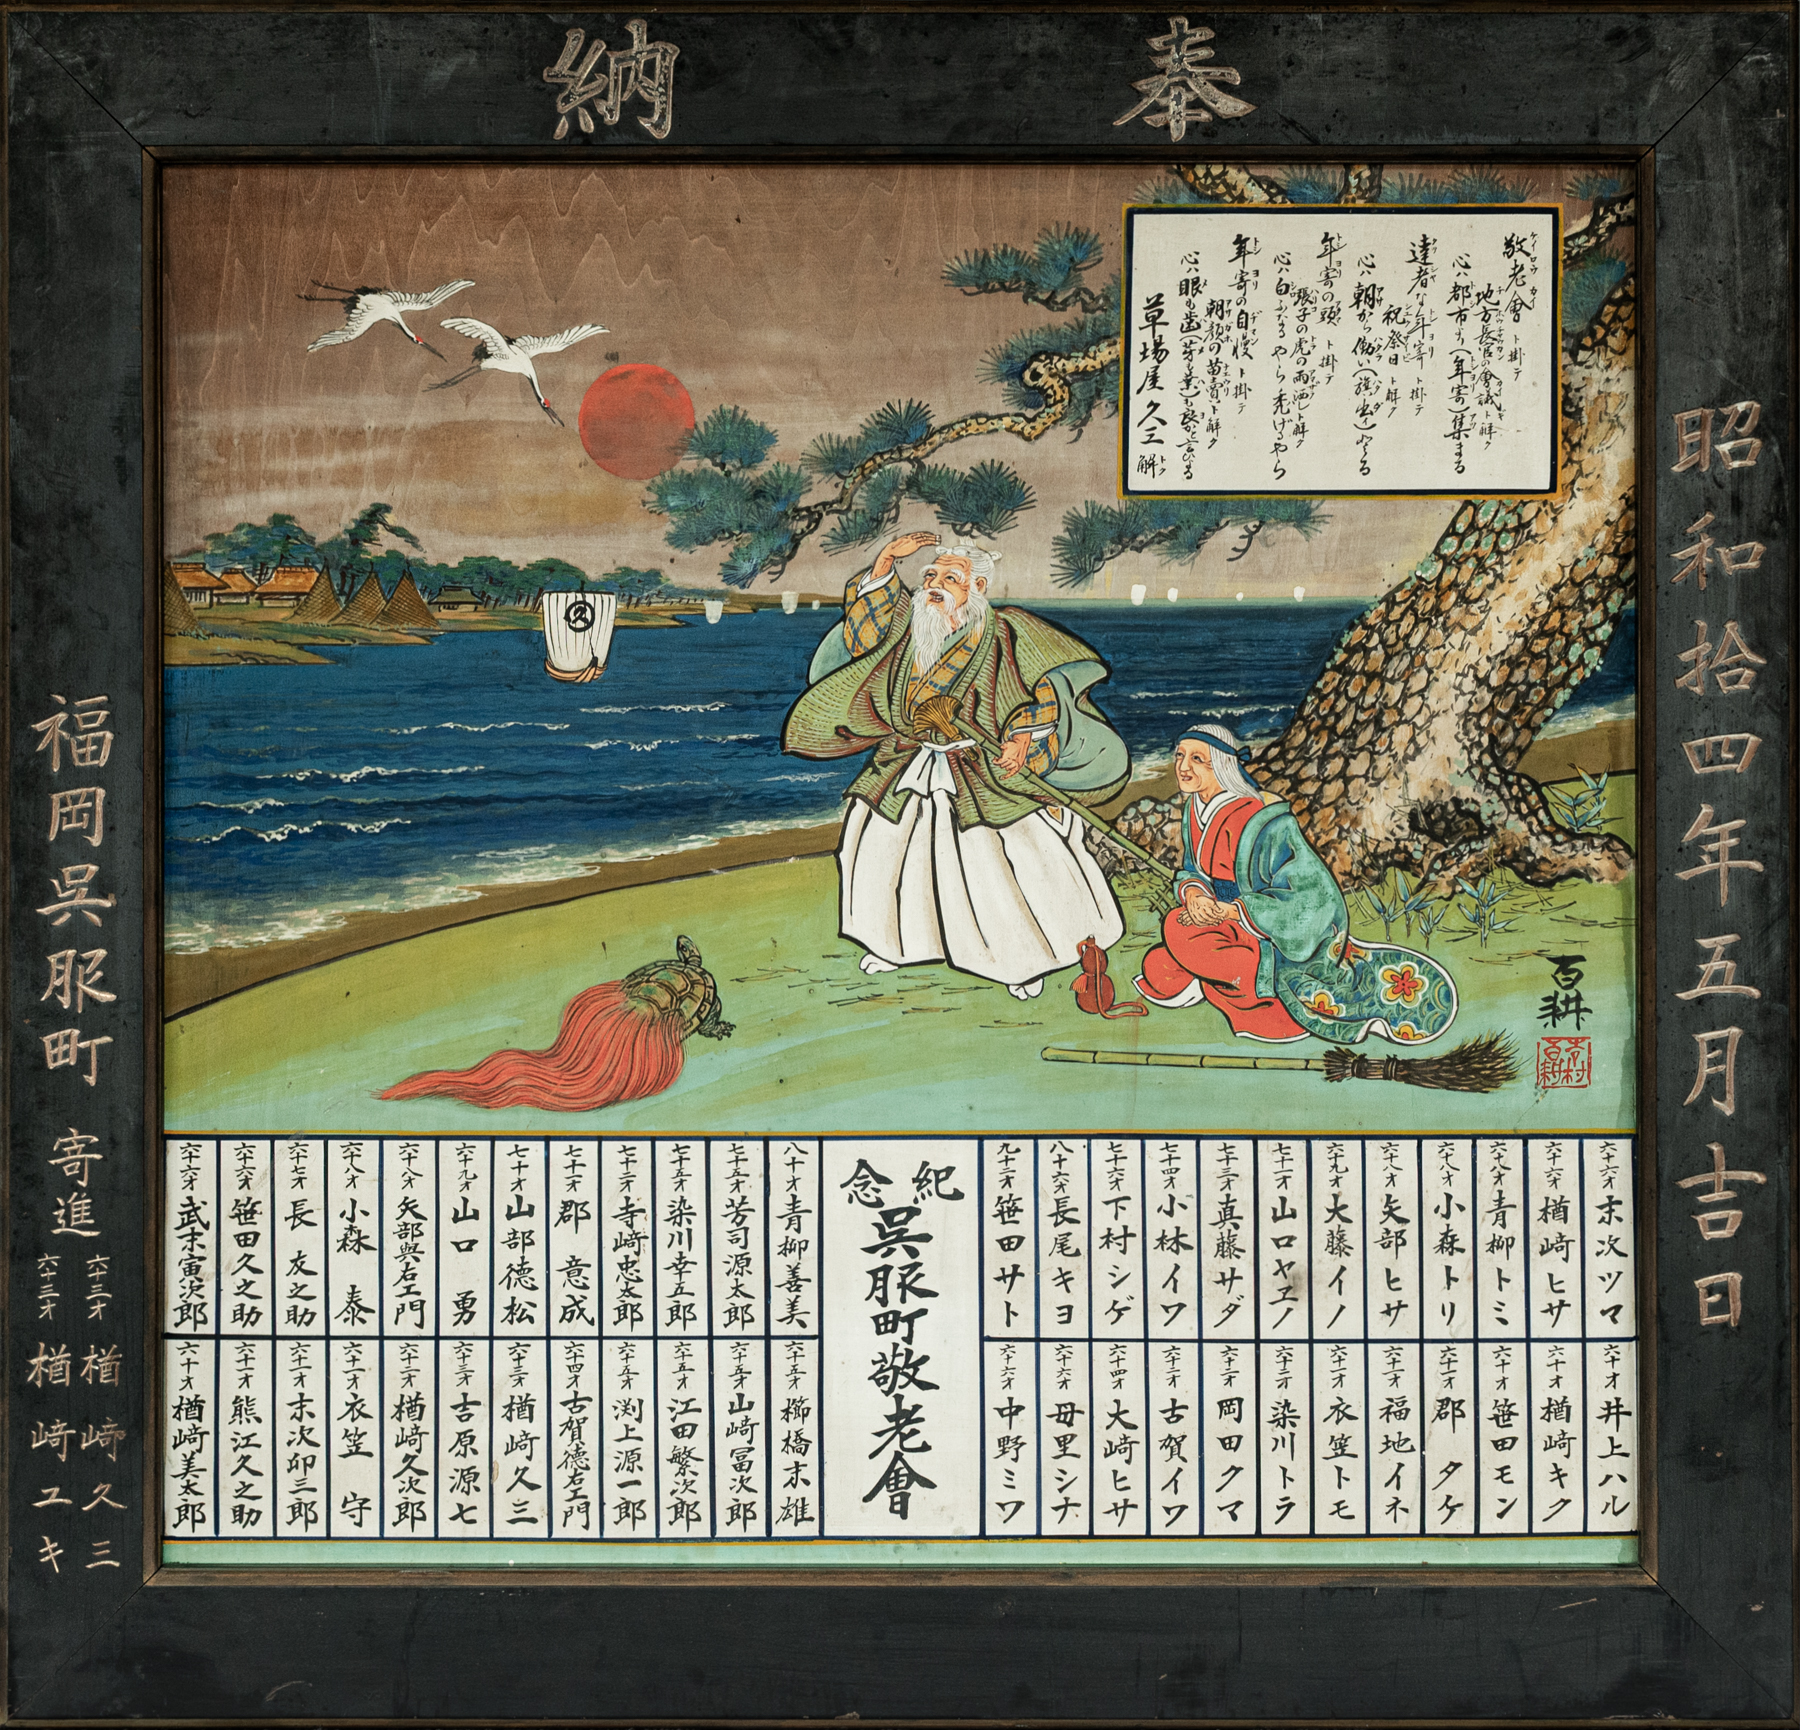 奉納
昭和拾四年五月吉日
敬老會 ト掛テ
地方長官の會議 ト解ク
心ハ都市より(年寄)集まる
達者な年寄 ト掛テ
祝祭日 ト解ク
心ハ朝から働い(旗出ィ)とる
年寄の頭 ト掛テ
張子の虎の雨洒し ト解ク
年寄の自慢 ト掛テ
朝顔の苗賣 ト解ク
心ハ眼も歯(芽も葉)も良かと言ひよる
草場屋久三 解
久
百耕
六十六才 末次ツマ
六十六才 楢﨑ヒサ
六十八才 青柳トミ
六十八才 小森トリ
六十八才 矢部ヒサ
六十九才 大藤イノ
七十一才 山口ヤヱノ
七十三才 真藤サダ
七十四才 小林イワ
七十六才 下村シゲ
八十六才 長尾キヨ
九十二才 笹田サト
六十才 井上ハル
六十才 楢﨑キク
六十才 笹田モン
六十一才 郡タケ
六十二才 福地イネ
六十二才 衣笠トモ
六十三才 染川トラ
六十三才 岡田クマ
六十三才 古賀イワ
六十四才 大﨑ヒサ
六十六才 母里シナ
六十六才 中野ミワ
紀念
呉服町敬老會
八十才 青柳善美
七十五才 芳司源太郎
七十五才 染川幸五郎
七十三才 寺﨑忠太郎
七十二才 郡意成
七十才 山部徳松
六十九才 山口勇
六十八才 矢部與右エ門
六十八才 小森泰
六十七才 長友之助
六十六才 笹田久之助
六十六才 武末寅次郎
六十五才 櫛橋末雄
六十五才 山﨑冨次郎
六十五才 江田繁次郎
六十五才 渕上源一郎
六十四才 古賀徳右エ門
六十三才 楢﨑久三
六十三才 吉原源七
六十三才 楢﨑久次郎
六十二才 衣笠守
六十一才 末次卯三郎
六十一才 熊江久之助
六十才 楢﨑美太郎
福岡呉服町 寄進
六十三才 楢﨑久三
六十三才 楢﨑ユキ